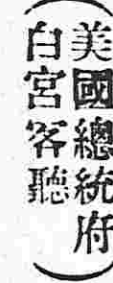 美國總統府
白宮客聽